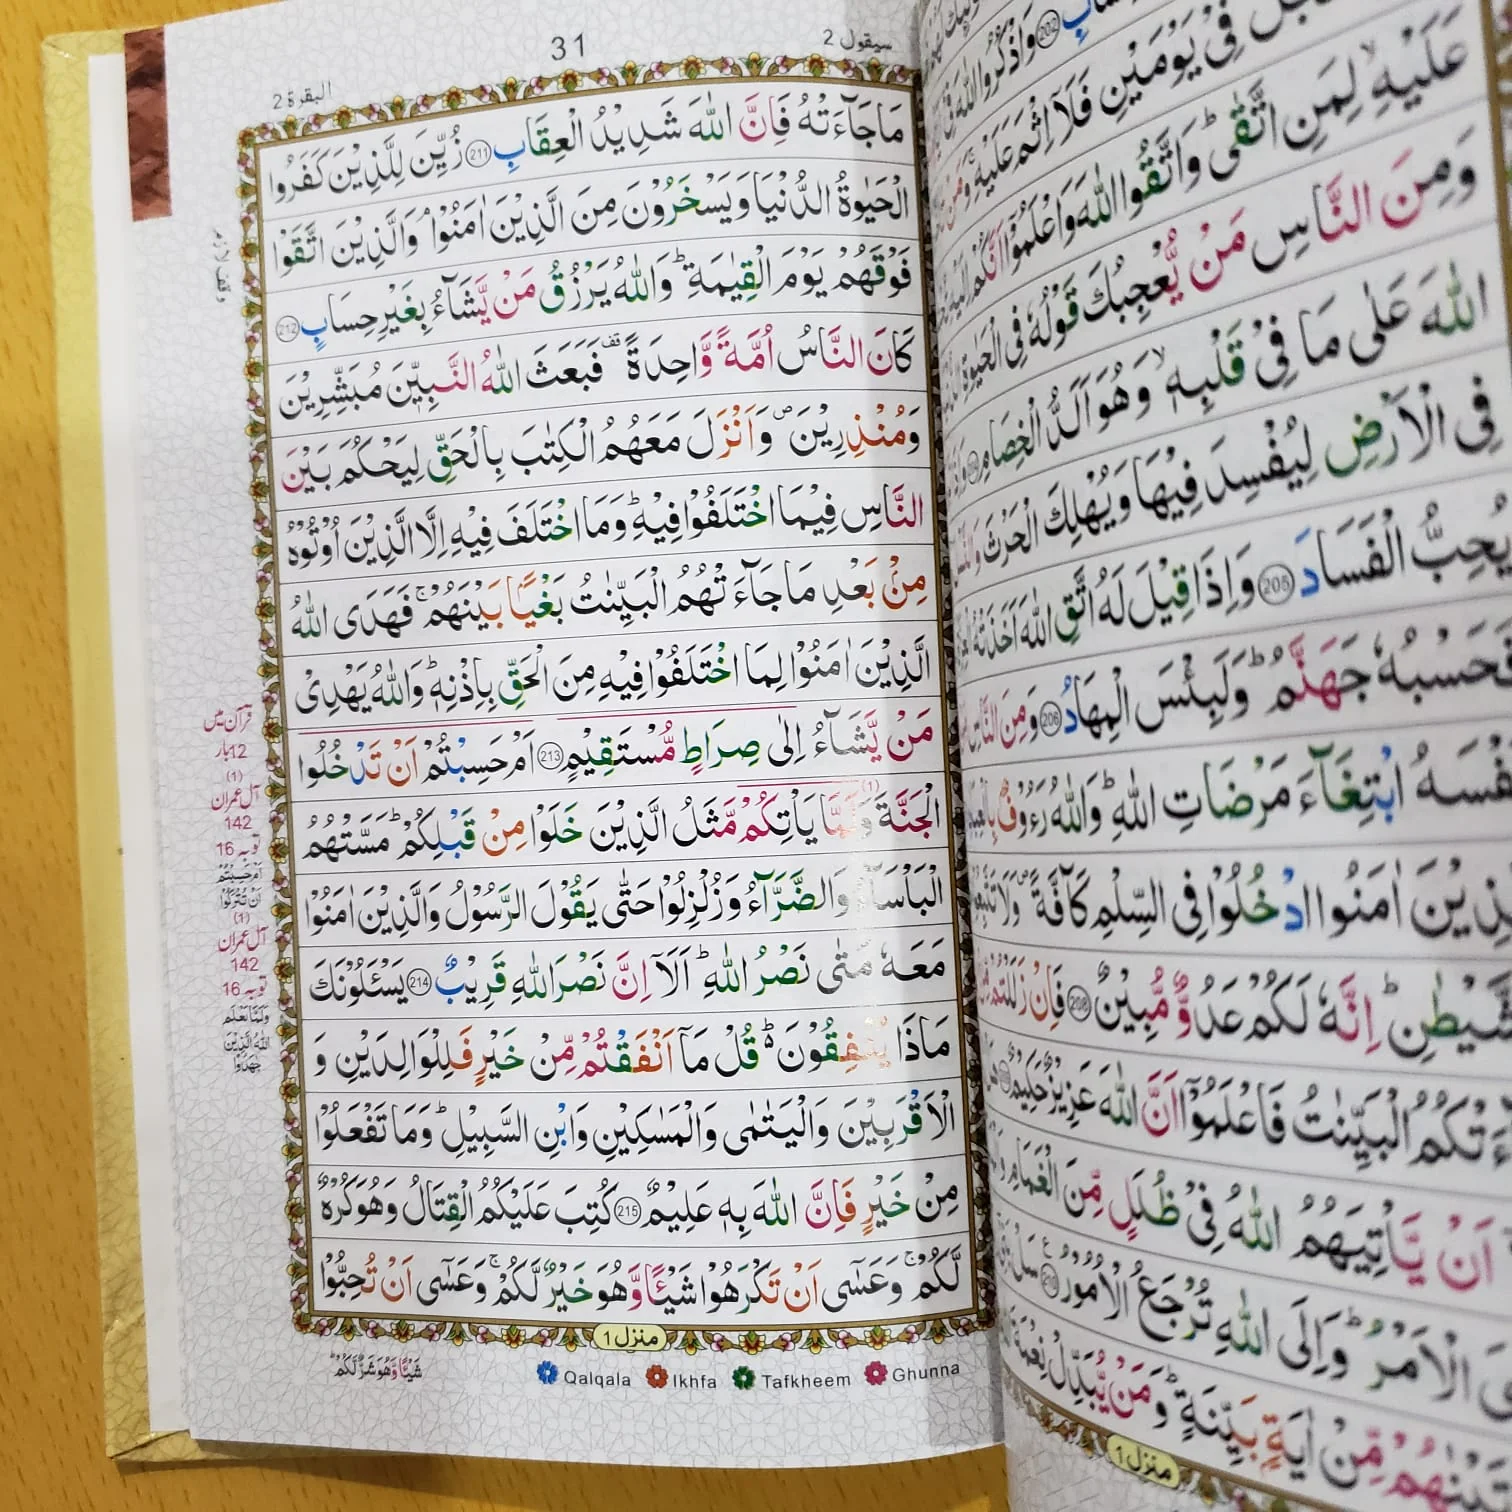 سيقول 2
31
البقرة 2
مَاجَآءَتْهُ فَاِنَّ اللّٰهَ شَدِيْدُ الْعِقَابِ 211 زُيِّنَ لِلَّذِيْنَ كَفَرُوا
الْحَيٰوةُ الدُّنْيَا وَيَسْخَرُوْنَ مِنَ الَّذِيْنَ اٰمَنُوْا ۘ وَالَّذِيْنَ اتَّقَوْا
فَوْقَهُمْ يَوْمَ الْقِيٰمَةِ ؕ وَاللّٰهُ يَرْزُقُ مَنْ يَّشَآءُ بِغَيْرِ حِسَابٍ 212
كَانَ النَّاسُ اُمَّةً وَّاحِدَةً قف فَبَعَثَ اللّٰهُ النَّبِيّٖنَ مُبَشِّرِيْنَ
وَمُنْذِرِيْنَ ص وَاَنْزَلَ مَعَهُمُ الْكِتٰبَ بِالْحَقِّ لِيَحْكُمَ بَيْنَ
النَّاسِ فِيْمَا اخْتَلَفُوْا فِيْهِ ؕ وَمَا اخْتَلَفَ فِيْهِ اِلَّا الَّذِيْنَ اُوْتُوْهُ
مِنْۢ بَعْدِ مَا جَآءَتْهُمُ الْبَيِّنٰتُ بَغْيًاۢ بَيْنَهُمْ ۚ فَهَدَى اللّٰهُ
الَّذِيْنَ اٰمَنُوْا لِمَا اخْتَلَفُوْا فِيْهِ مِنَ الْحَقِّ بِاِذْنِهٖ ؕ وَاللّٰهُ يَهْدِيْ
مَنْ يَّشَآءُ اِلٰى صِرَاطٍ مُّسْتَقِيْمٍ 213 اَمْ حَسِبْتُمْ اَنْ تَدْخُلُوا
الْجَنَّةَ وَلَمَّا يَاْتِكُمْ مَّثَلُ الَّذِيْنَ خَلَوْا مِنْ قَبْلِكُمْ ؕ مَسَّتْهُمُ
الْبَاْسَآءُ وَالضَّرَّآءُ وَزُلْزِلُوْا حَتّٰى يَقُوْلَ الرَّسُوْلُ وَالَّذِيْنَ اٰمَنُوْا
مَعَهٗ مَتٰى نَصْرُ اللّٰهِ ؕ اَلَاۤ اِنَّ نَصْرَ اللّٰهِ قَرِيْبٌ 214 يَسْـَٔلُوْنَكَ
مَاذَا يُنْفِقُوْنَ ؕ قُلْ مَاۤ اَنْفَقْتُمْ مِّنْ خَيْرٍ فَلِلْوَالِدَيْنِ وَ
الْاَقْرَبِيْنَ وَالْيَتٰمٰى وَالْمَسٰكِيْنِ وَابْنِ السَّبِيْلِ ؕ وَمَا تَفْعَلُوْا
مِنْ خَيْرٍ فَاِنَّ اللّٰهَ بِهٖ عَلِيْمٌ 215 كُتِبَ عَلَيْكُمُ الْقِتَالُ وَهُوَ كُرْهٌ
لَّكُمْ ۚ وَعَسٰۤى اَنْ تَكْرَهُوْا شَيْـًٔا وَّهُوَ خَيْرٌ لَّكُمْ ۚ وَعَسٰۤى اَنْ تُحِبُّوْا
منزل 1
شَيْـًٔا وَّهُوَ شَرٌّ لَّكُمْ ؕ
Qalqala Ikhfa Tafkheem Ghunna
قرآن میں
12 بار
(1)
آل عمران
142
توبہ 16
اَمْ حَسِبْتُمْ
اَنْ تُتْرَكُوْا
(1)
آل عمران
142
توبہ 16
وَلَمَّا يَعْلَمِ
اللّٰهُ الَّذِيْنَ
جٰهَدُوْا
202 وَاذْكُرُوا اللّٰهَ فِيْ
فِيْ يَوْمَيْنِ فَلَاۤ اِثْمَ عَلَيْهِ ۚ وَمَنْ
عَلَيْهِ ۙ لِمَنِ اتَّقٰى ؕ وَاتَّقُوا اللّٰهَ وَاعْلَمُوْۤا اَنَّكُمْ اِلَيْهِ
وَمِنَ النَّاسِ مَنْ يُّعْجِبُكَ قَوْلُهٗ فِي الْحَيٰوةِ
اللّٰهَ عَلٰى مَا فِيْ قَلْبِهٖ ۙ وَهُوَ اَلَدُّ الْخِصَامِ
فِي الْاَرْضِ لِيُفْسِدَ فِيْهَا وَيُهْلِكَ الْحَرْثَ وَالنَّسْلَ
يُحِبُّ الْفَسَادَ 205 وَاِذَا قِيْلَ لَهُ اتَّقِ اللّٰهَ اَخَذَتْهُ
فَحَسْبُهٗ جَهَنَّمُ ؕ وَلَبِئْسَ الْمِهَادُ 206 وَمِنَ النَّاسِ
نَفْسَهُ ابْتِغَآءَ مَرْضَاتِ اللّٰهِ ؕ وَاللّٰهُ رَءُوْفٌۢ بِالْعِبَادِ
الَّذِيْنَ اٰمَنُوا ادْخُلُوْا فِي السِّلْمِ كَآفَّةً ص وَلَا تَتَّبِعُوْا
الشَّيْطٰنِ ؕ اِنَّهٗ لَكُمْ عَدُوٌّ مُّبِيْنٌ 208 فَاِنْ زَلَلْتُمْ مِّنْ
جَآءَتْكُمُ الْبَيِّنٰتُ فَاعْلَمُوْۤا اَنَّ اللّٰهَ عَزِيْزٌ حَكِيْمٌ
اَنْ يَّاْتِيَهُمُ اللّٰهُ فِيْ ظُلَلٍ مِّنَ الْغَمَامِ
الْاَمْرُ ؕ وَاِلَى اللّٰهِ تُرْجَعُ الْاُمُوْرُ 210 سَلْ
مِّنْ اٰيَةٍۢ بَيِّنَةٍ ؕ وَمَنْ يُّبَدِّلْ نِعْمَةَ
منزل 1